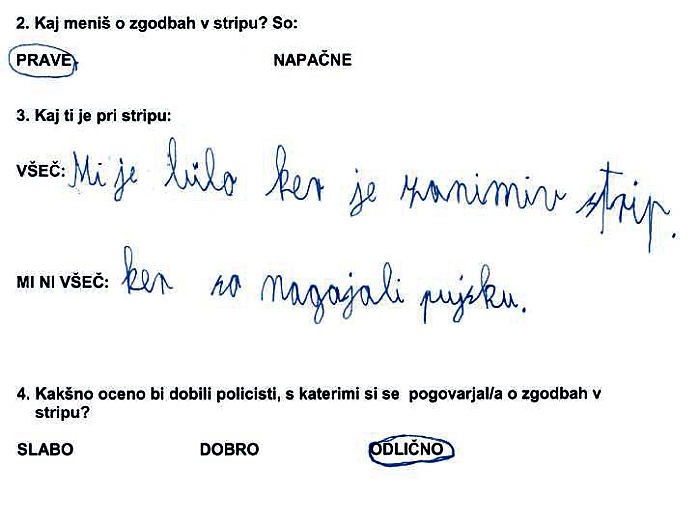 2. Kaj meniš o zgodbah v stripu? So:
PRAVE NAPAČNE
3. Kaj ti je pri stripu:
VŠEČ: Mi je bilo ker je zanimiv strip.
MI NI VŠEČ: ker so nagajali pujsku.
4. Kakšno oceno bi dobili policisti, s katerimi si se pogovarjal/a o zgodbah v
stripu?
SLABO DOBRO ODLIČNO